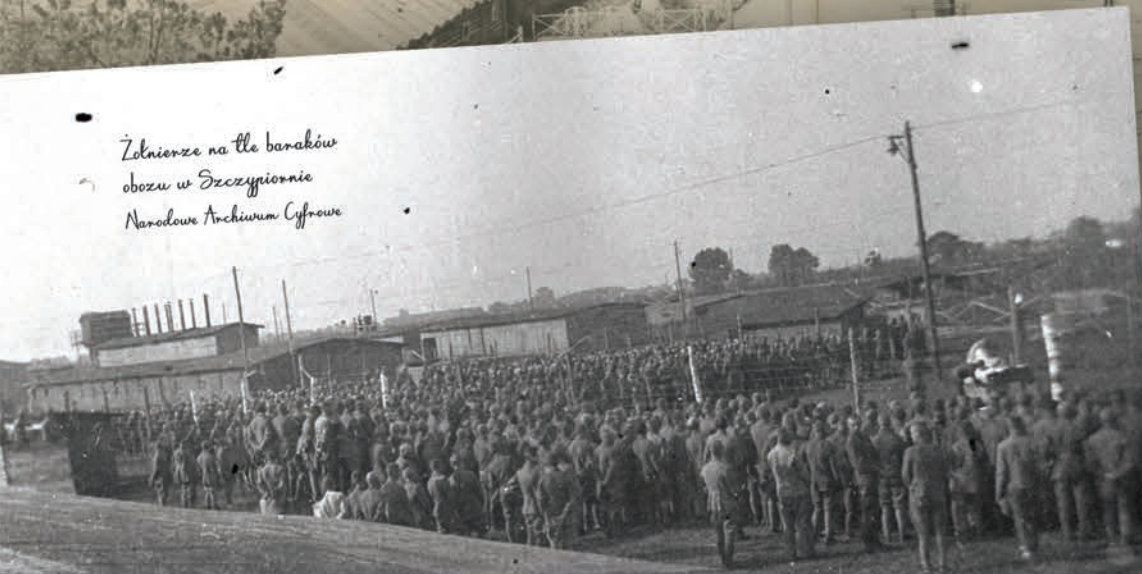 Żołnierze na tle baraków
obozu w Szczypiornie
Narodowe Archiwum Cyfrowe